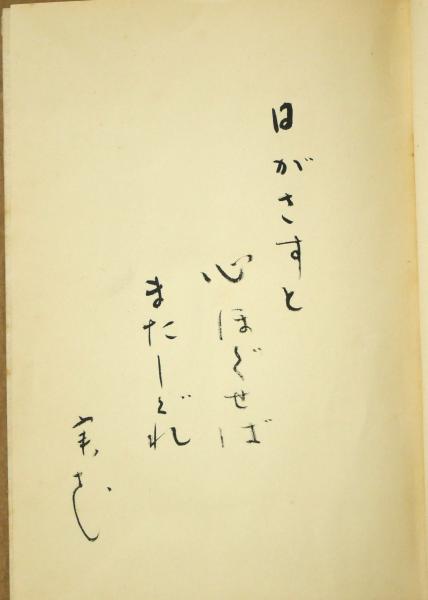 日がさすと
心ほぐせば
またしぐれ